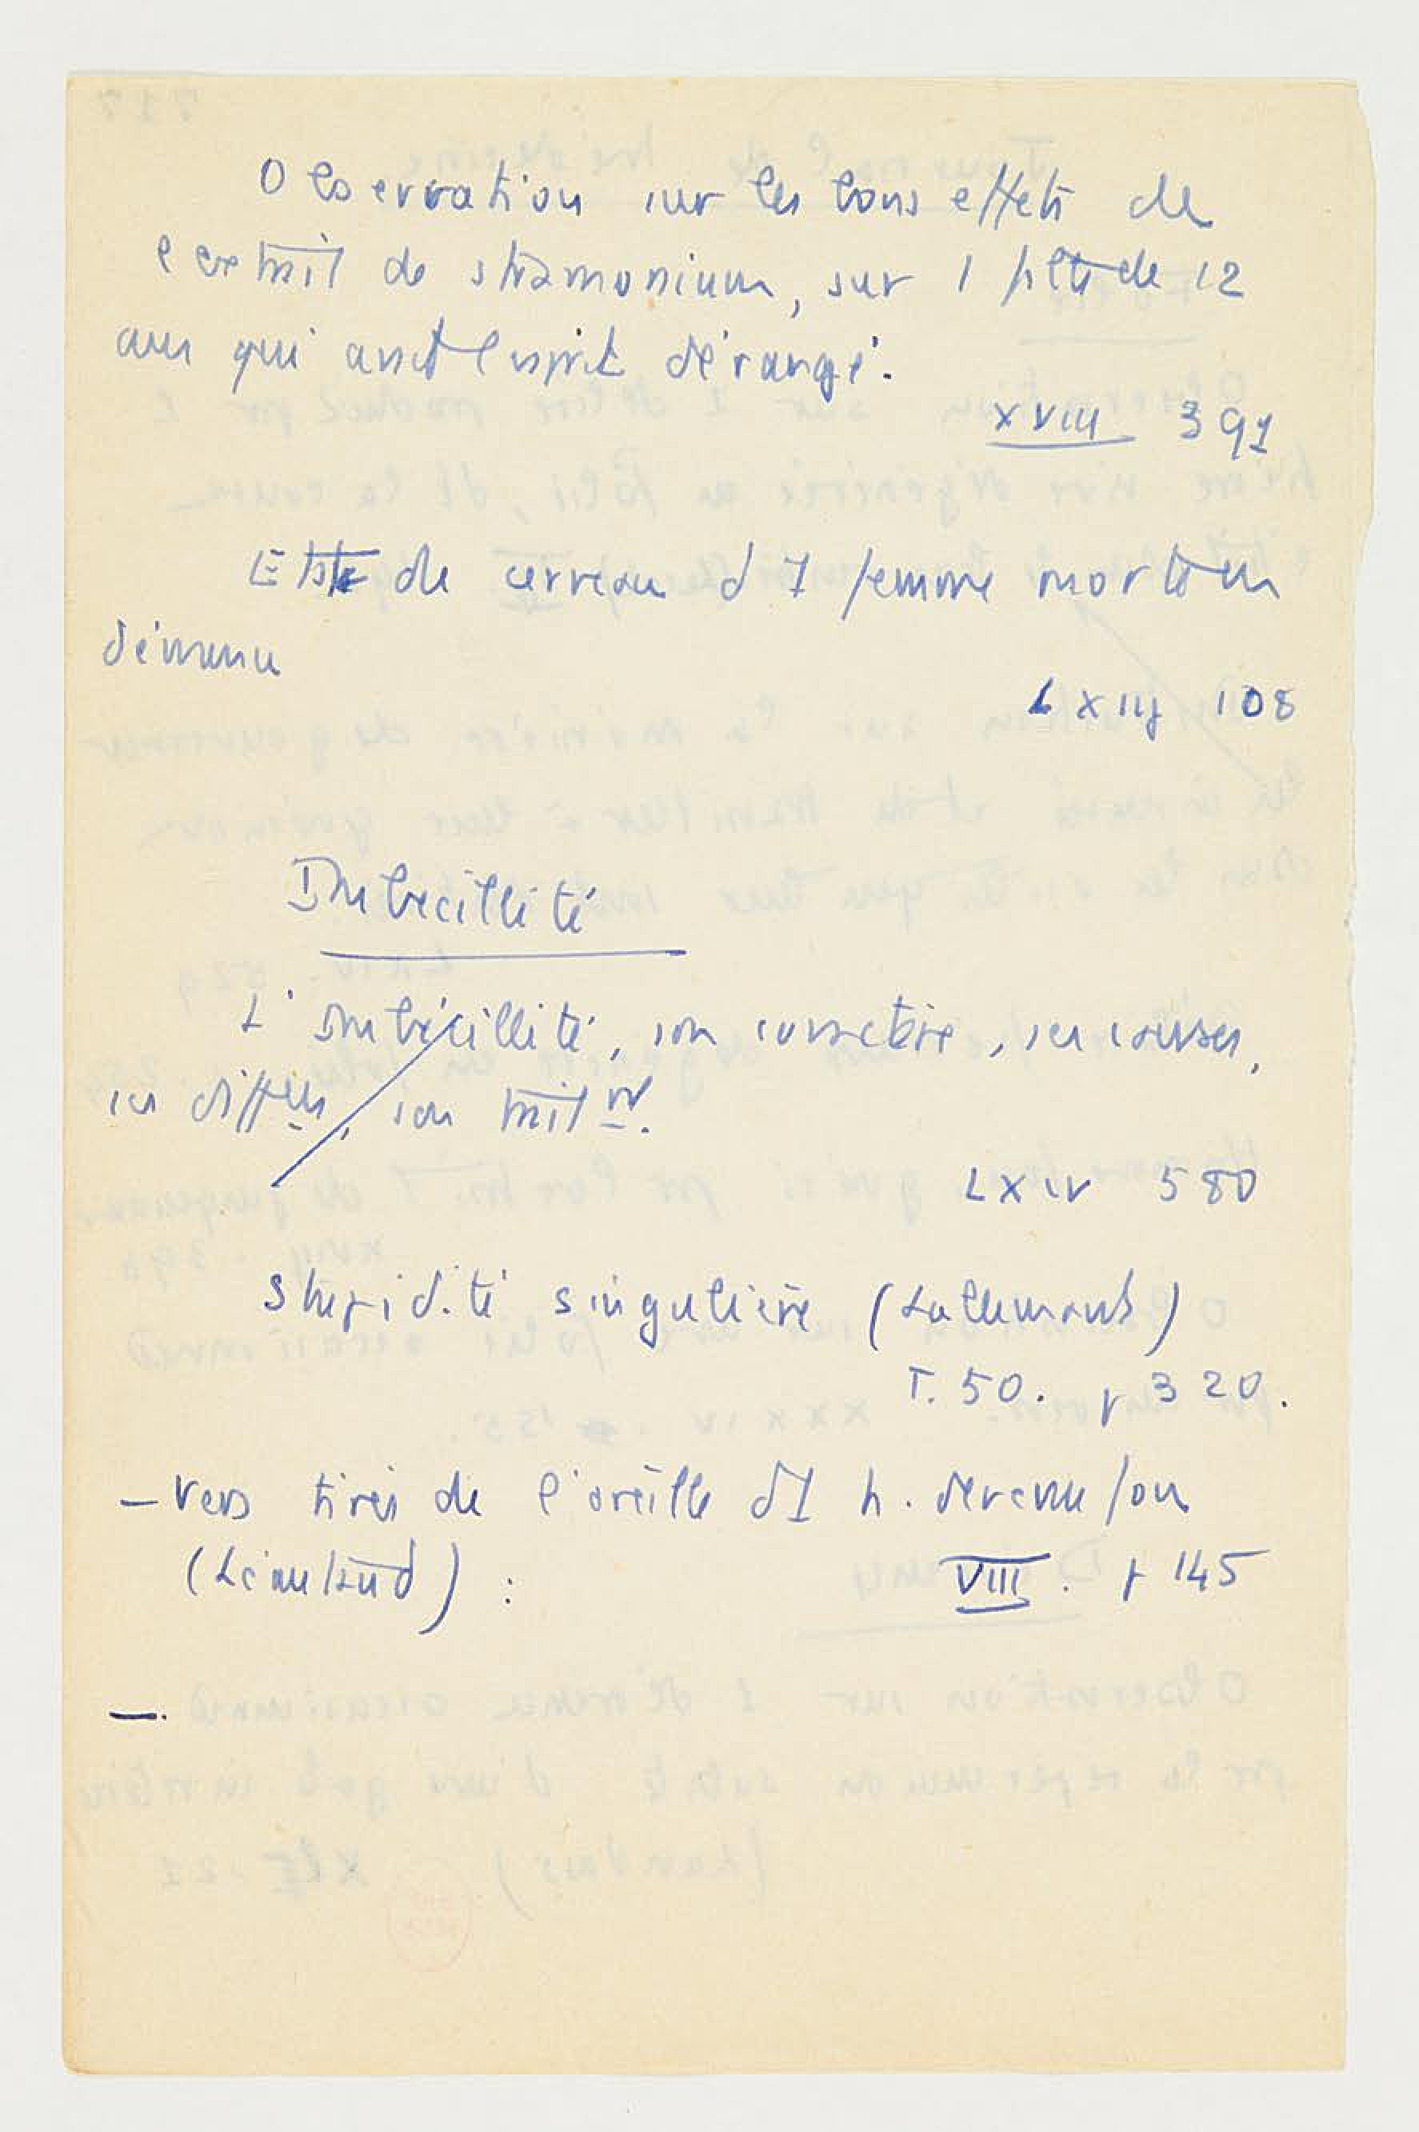 Observation sur les bons effets de
l'extrait de stramonium, sur 1 fille de 12
ans qui avait l'esprit dérangé.
XVIII 391
Etat de cerveau d'1 femme morte en
démence
LXIIJ 108
Imbécillité
L'Imbécillité, son caractère, ses causes,
ses différ, son trait nt.
LXIV 580
Stupidité singulière (Lallemant)
T. 50. p 320.
— Vers tirés de l'oreille d'1 h. devenu fou
(Lieutaud) : VIII. p 145
—.